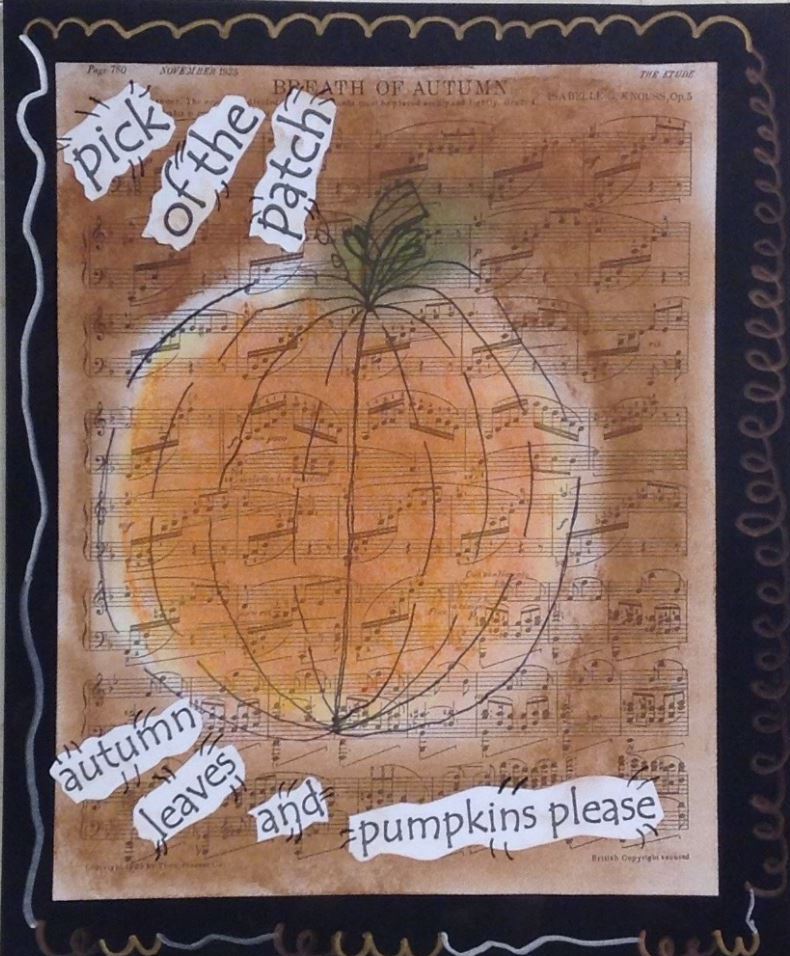 Page 780 NOVEMBER 1925 THE ETUDE
BREATH OF AUTUMN
ISABELLE G. KNOUSS, Op.5
pick
of the
patch
autumn
leaves
and
pumpkins please
British Copyright secured